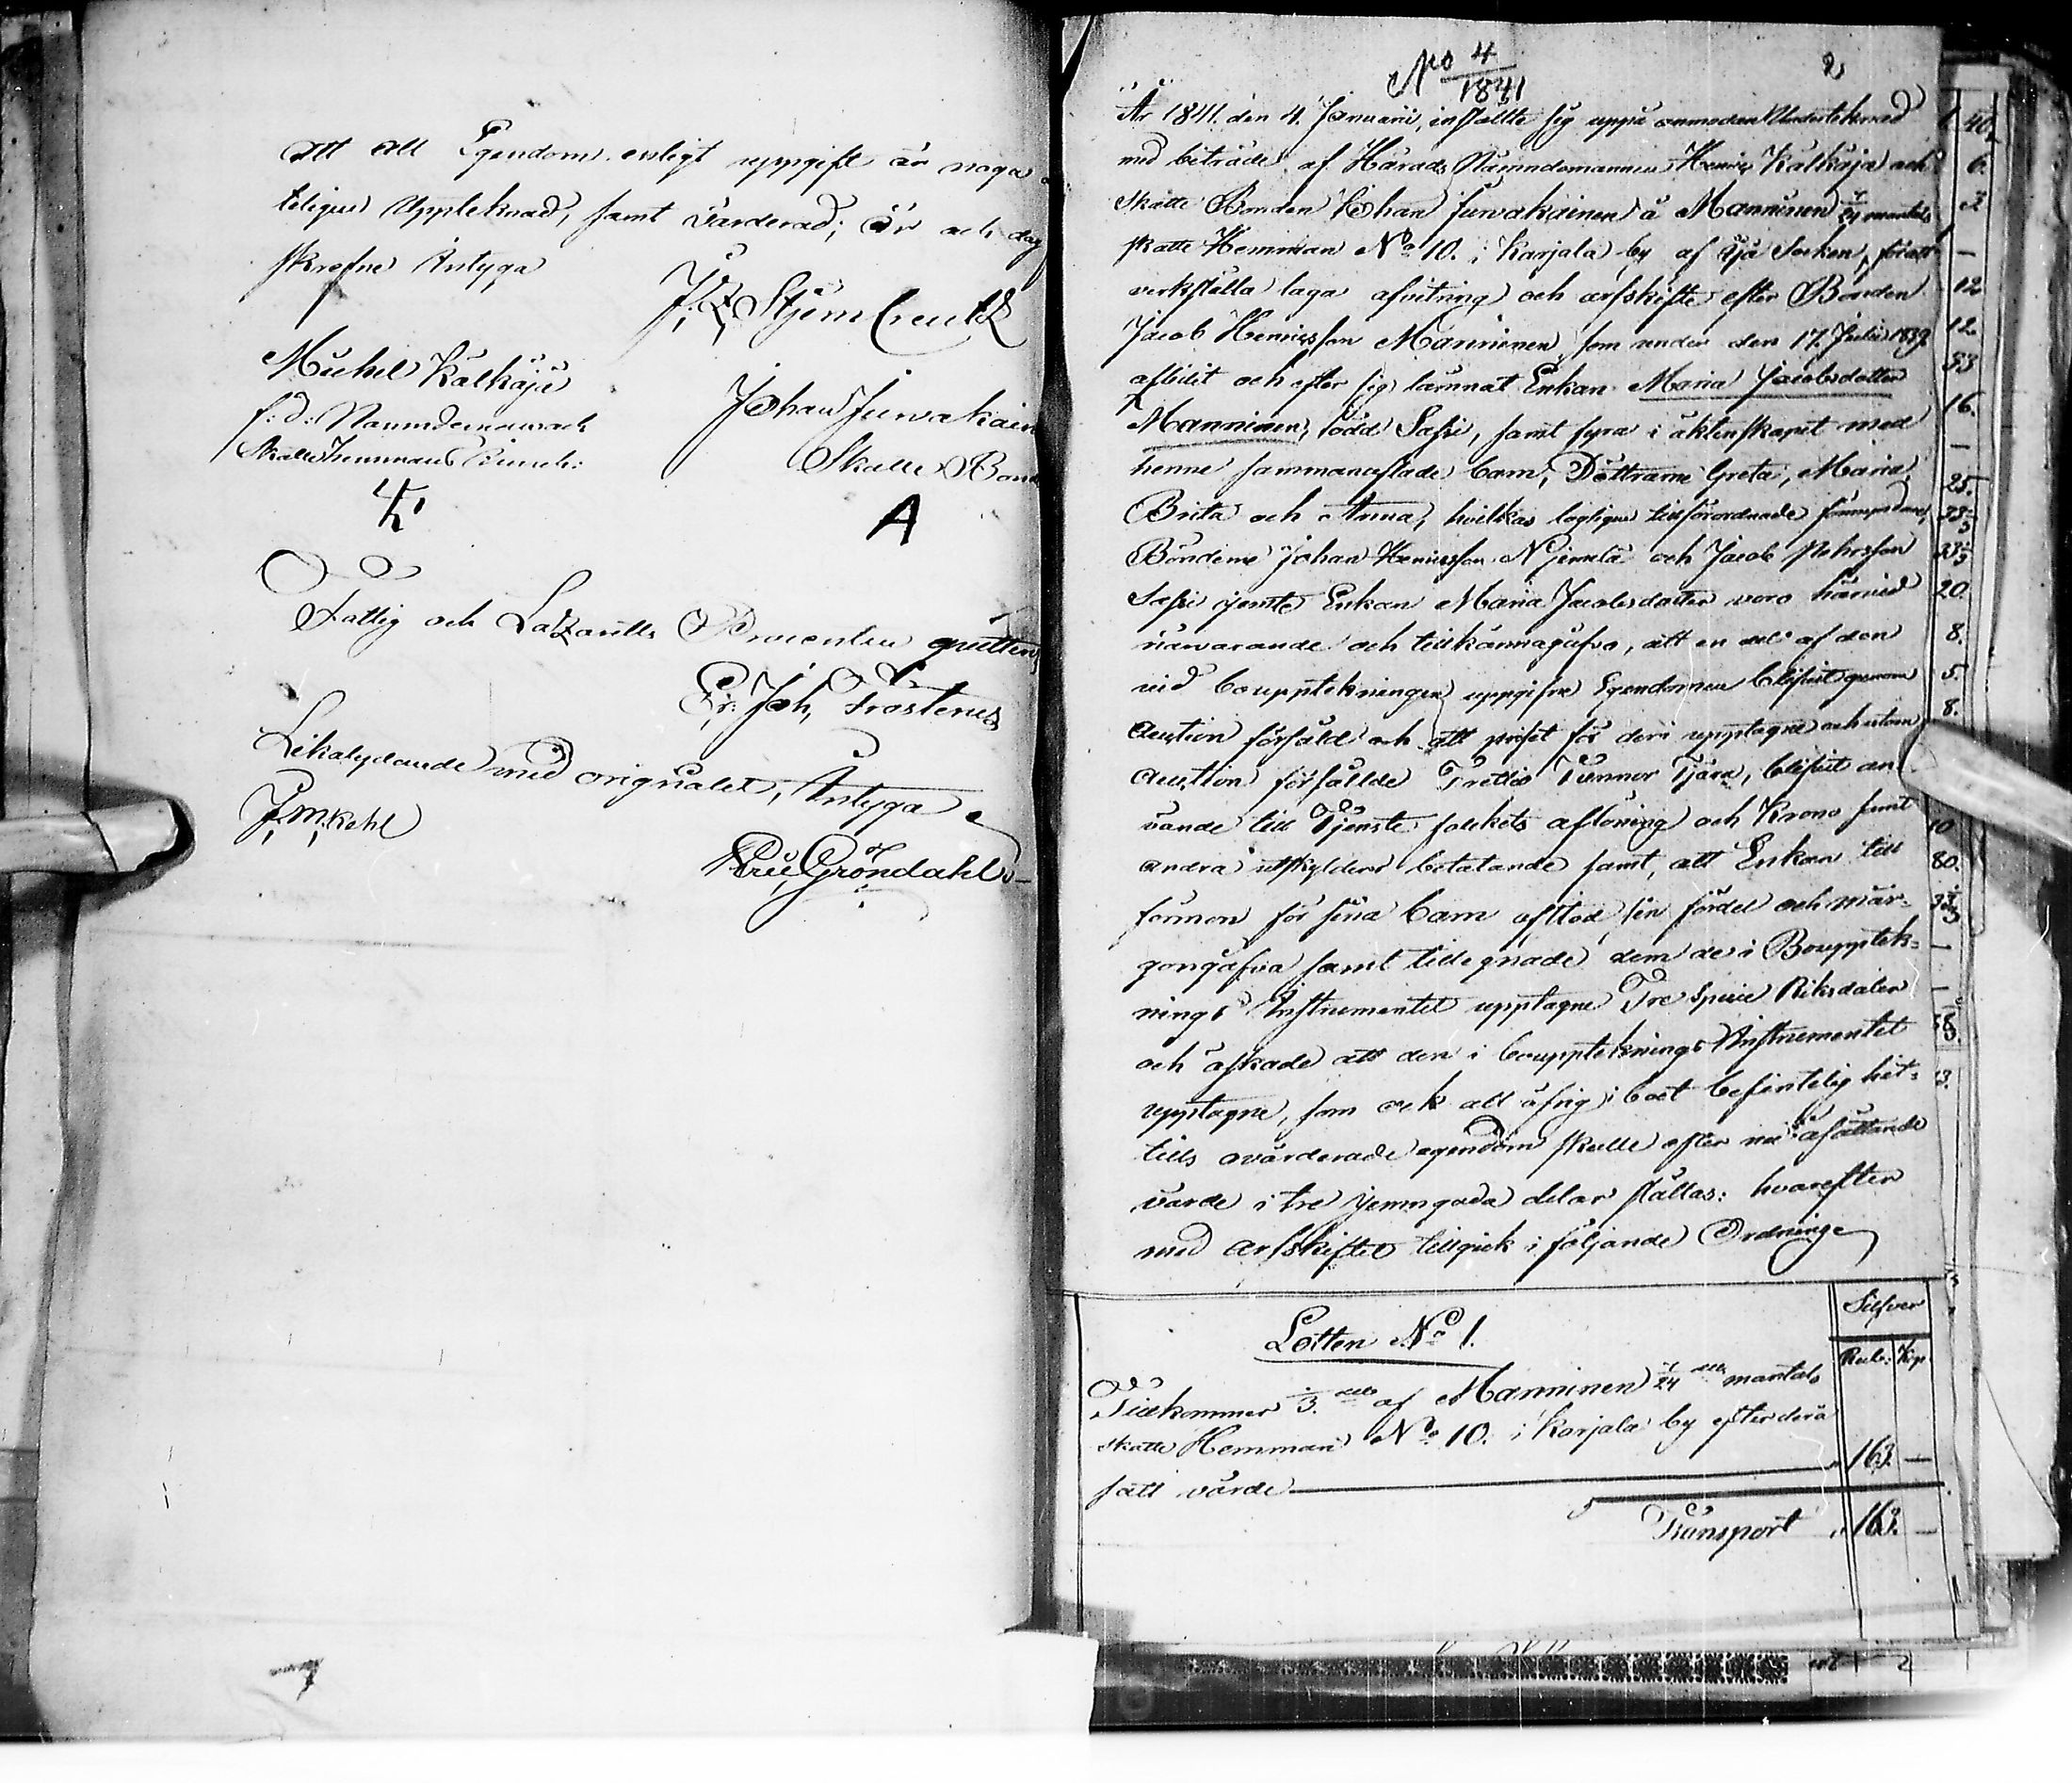 att all Egendom enligt uppgift är noga
teligen Uppteknad, samt Värderad; år och dag
skrefne Intyga
J. Z. StjernCreutz
Michel Kalkaja
f: d: Nämndeman och
Skatte Hemmans
Johan Juvakain
Skatte Bond
A
Fattig och Latzaretts Procenten quitter
Er. Joh, Frosterus
Likalydande med originalet, Intyga
J. M. Kehl
Gröndahl
No 4
1841
2
År 1841. den 4. Januarii, instälte sig uppå anmodan Undertecknad
med biträde af Härads Nämndemannen Henric Kalkaja och
skatte Bonden Johan Juvakainen å Manninen 7/24 mantals
skatte Hemman No 10. i Karjala by af Ijå Socken, för att
verkställa laga afvitring och arfskifte efter Bonden
Jacob Henricsson Manninen som under den 17. Julii 1839
aflidit och efter sig lämnat Enkan Maria Jacobsdotter
Manninen, född Sassi, samt fyra i äktenskapet med
henne sammanaflade barn, Döttrarne Greta, Maria,
Brita och Anna, hvilkas lagligen tillförordnade förmyndare,
Bönderne Johan Henricsson Njemelä och Jacob Pehrsson
Sassi jemte Enkan Maria Jacobsdotter voro härvid
närvarande och tillkännagåfvo, att en del af den
vid bouppteckningen uppgifne Egendomen blifvit genom
Auction försåld och att priset för deri upptagne och utom
Auction försållde Trettio Tunnor Tjära, blifvit an
vände till Tjenste folckets aflöning och Krono samt
andra utskylders betalande samt, att Enkan till
förmon för sina barn afstod sin fördel och mår-
gongåfva samt tillegnade dem de i Bouppteck-
nings Instrumentet upptagne Tre Specie Riksdaler
och äskade att den i bouppteknings Instrumentet
upptagne, som ock all öfrig i boet befintelig hit-
tills ovärderade egendom skulle efter nu åsättande
värde i tre jemngoda delar ställas: hvarefter
med arfskiftet tillgick i följande Ordning
Lotten No 1.
Silfver
Rub: Kop
Tillkommer 1/3. del af Manninen 7/24 dels mantals
skatte Hemman No 10. i Karjala by efter derå
satt värde 163. —
Transport 163. —
40.
6.
3
—
12
12.
33
16.
—
25.
33 1/3
33 1/3
20.
8.
5.
8.
10
80.
33 1/3
—
—
58
3.